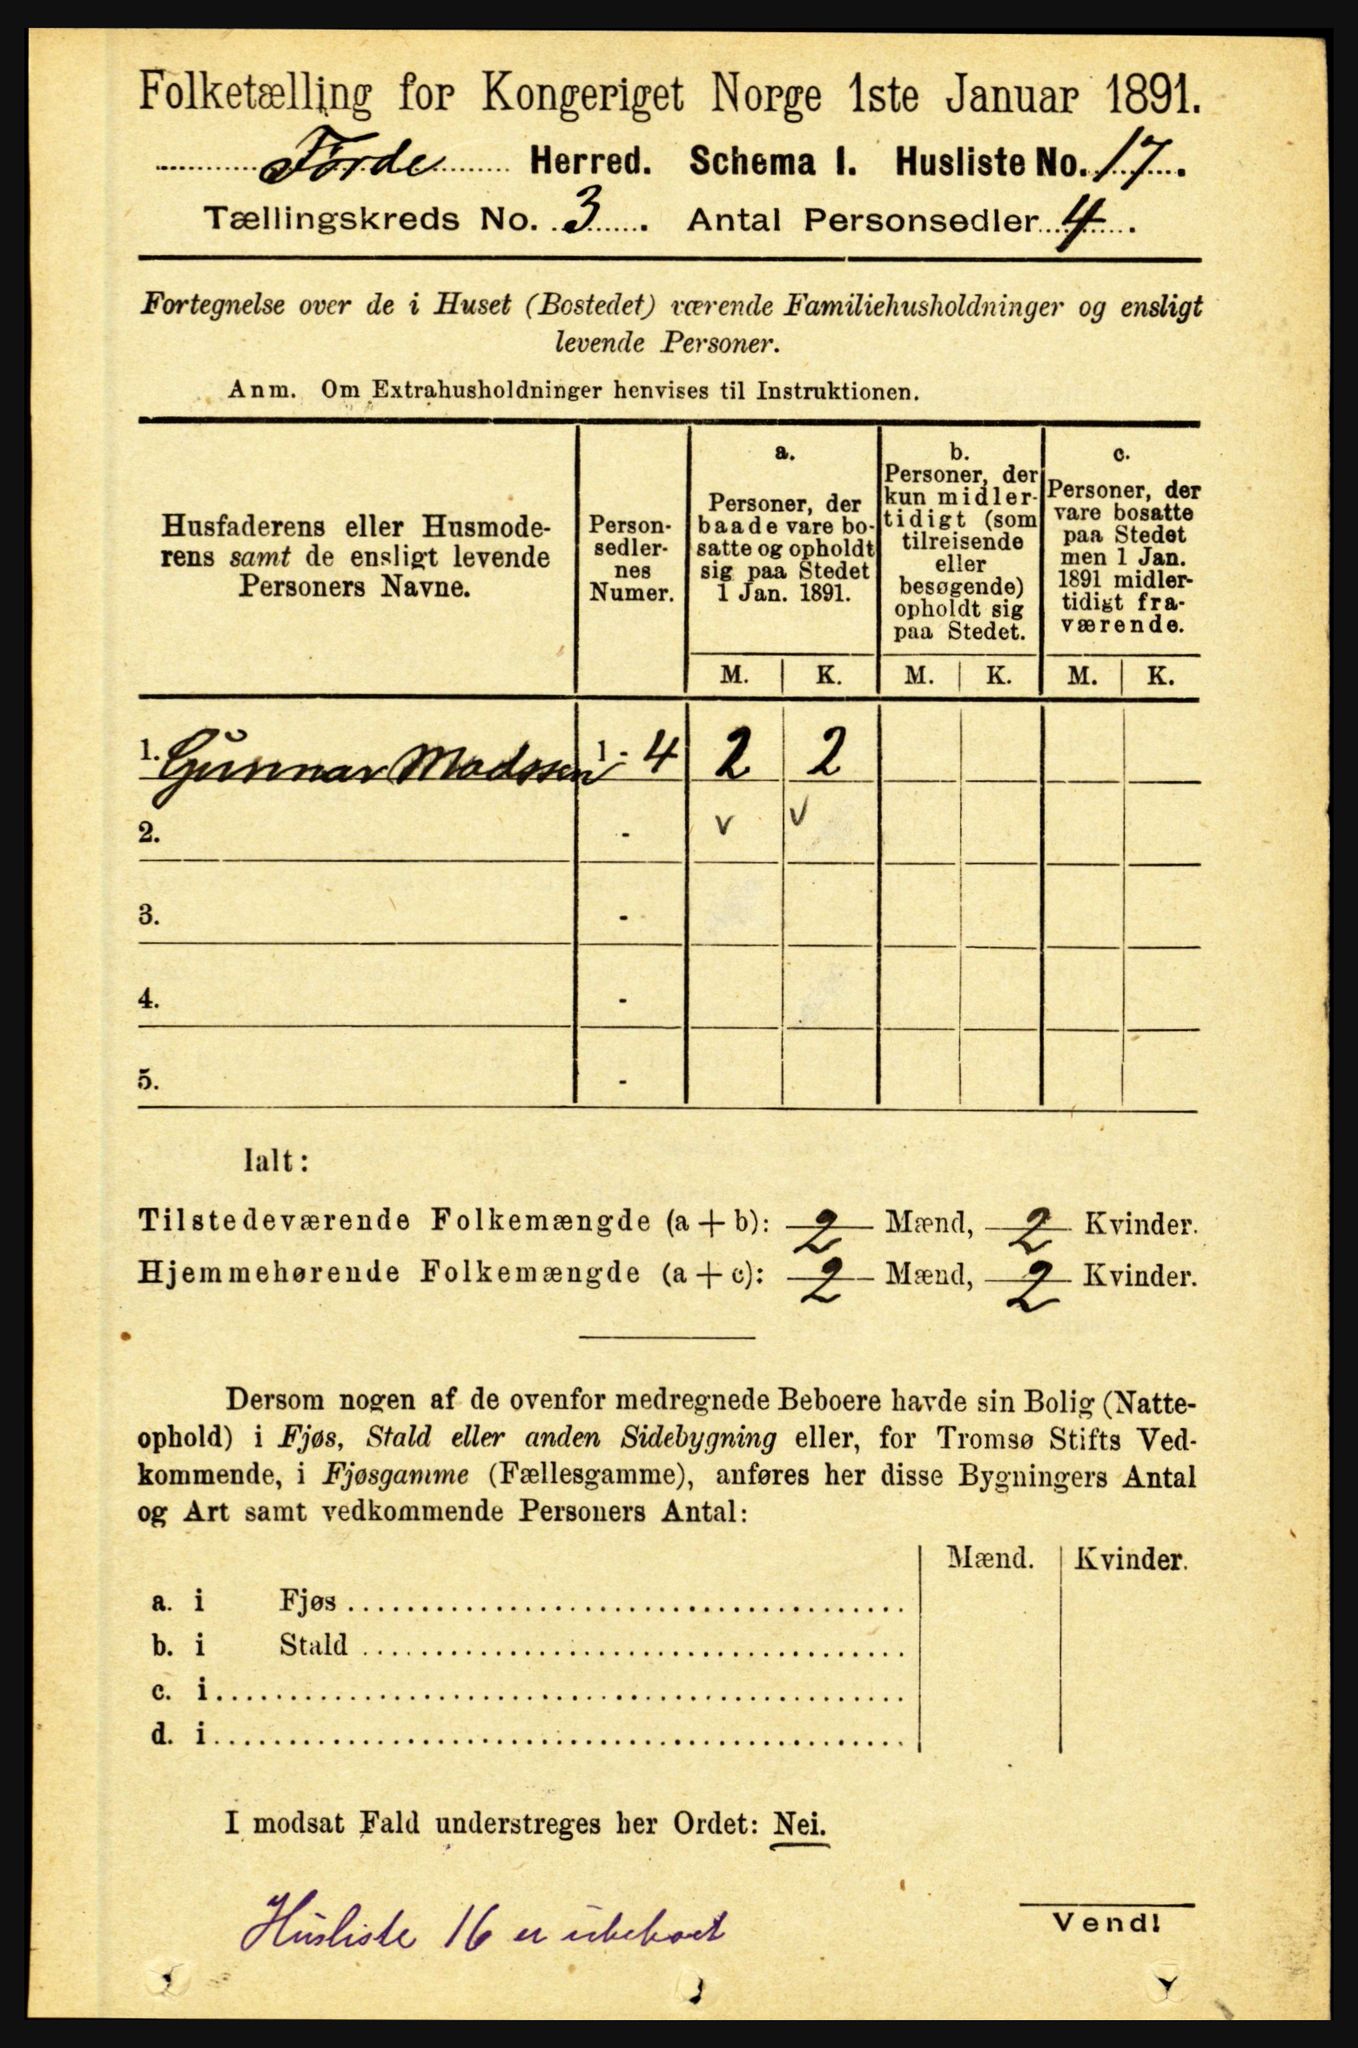 Folketælling for Kongeriget Norge 1ste Januar 1891.
Førde Herred. Schema I. Husliste No. 17.
Tællingskreds No. 3. Antal Personsedler 4.
Fortegnelse over de i Huset (Bostedet) værende Familiehusholdninger og ensligt
levende Personer.
Anm. Om Extrahusholdninger henvises til Instruktionen.
Husfaderens eller Husmode-
rens samt de ensligt levende
Personers Navne.
Person-
sedler-
nes
Numer.
a.
Personer, der
baade vare bo-
satte og opholdt
sig paa Stedet
1 Jan. 1891.
b.
Personer, der
kun midler-
tidigt (som
tilreisende
eller
besøgende)
opholdt sig
paa Stedet.
c.
Personer, der
vare bosatte
paa Stedet
men 1 Jan.
1891 midler-
tidigt fra-
værende.
M. K. M. K. M. K.
1. Gunnar Madssen 1 - 4 2 2
2. - v v
3. -
4. -
5. -
Ialt:
Tilstedeværende Folkemængde (a + b): 2 Mænd, 2 Kvinder.
Hjemmehørende Folkemængde (a + c): 2 Mænd, 2 Kvinder.
Dersom nogen af de ovenfor medregnede Beboere havde sin Bolig (Natte-
ophold) i Fjøs, Stald eller anden Sidebygning eller, for Tromsø Stifts Ved-
kommende, i Fjøsgamme (Fællesgamme), anføres her disse Bygningers Antal
og Art samt vedkommende Personers Antal:
Mænd. Kvinder.
a. i Fjøs
b. i Stald
c. i
d. i
I modsat Fald understreges her Ordet: Nei.
Husliste 16 er ubeboet
Vend!